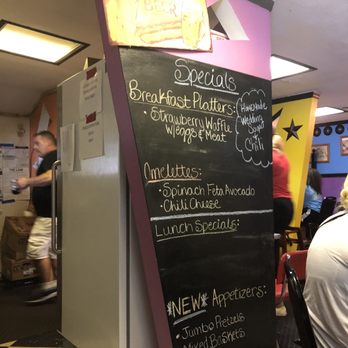 Specials
Breakfast Platters:
• Strawberry Waffle
w/eggs & Meat
Homemade
Wedding
Soup
+
Chili
Omelettes:
• Spinach Feta Avocado
• Chili Cheese
Lunch Specials:
*NEW* Appetizers:
• Jumbo Pretzels